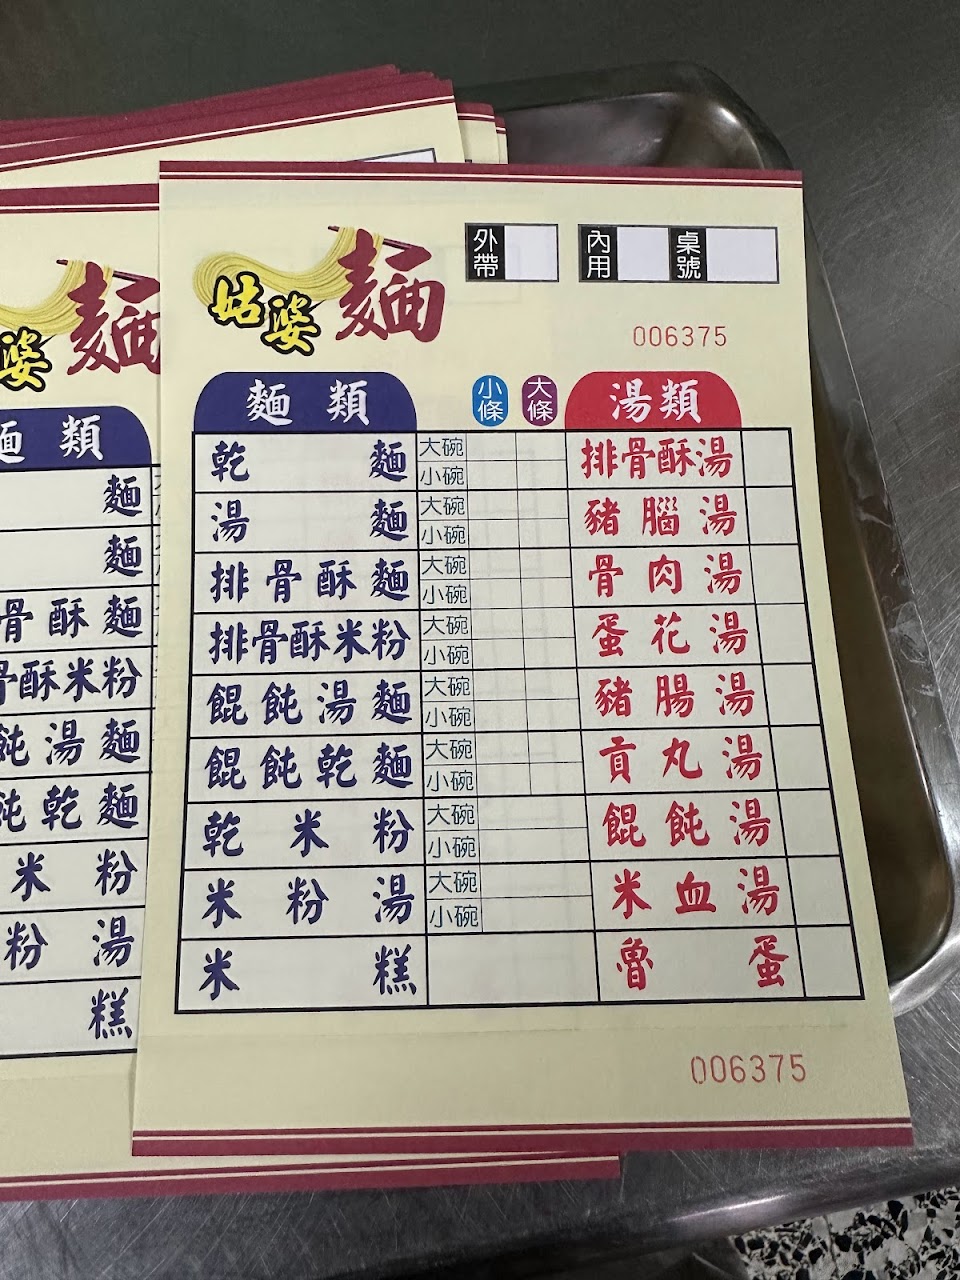 姑婆麵
外帶 內用 桌號
006375
麵類 小條 大條 湯類
乾麵 大碗 小碗 排骨酥湯
湯麵 大碗 小碗 豬腦湯
排骨酥麵 大碗 小碗 骨肉湯
排骨酥米粉 大碗 小碗 蛋花湯
餛飩湯麵 大碗 小碗 豬腸湯
餛飩乾麵 大碗 小碗 貢丸湯
乾米粉 大碗 小碗 餛飩湯
米粉湯 大碗 小碗 米血湯
米糕 魯蛋
006375
婆麵
麵類
麵
麵
骨酥麵
骨酥米粉
飩湯麵
飩乾麵
米粉
粉湯
糕